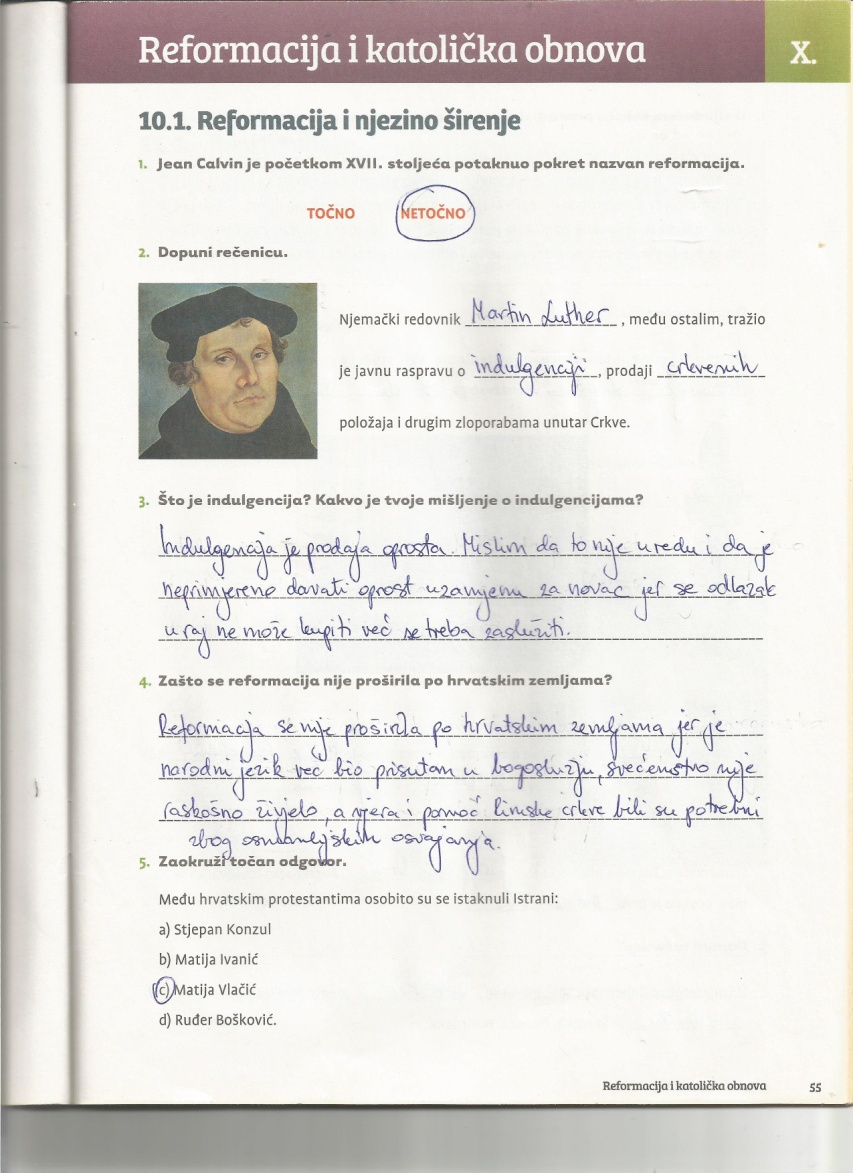 Reformacija i katolička obnova
X.
10.1. Reformacija i njezino širenje
1. Jean Calvin je početkom XVII. stoljeća potaknuo pokret nazvan reformacija.
TOČNO NETOČNO
2. Dopuni rečenicu.
Njemački redovnik Martin Luther, među ostalim, tražio
je javnu raspravu o indulgenciji, prodaji crkvenih
položaja i drugim zloporabama unutar Crkve.
3. Što je indulgencija? Kakvo je tvoje mišljenje o indulgencijama?
Indulgencija je prodaja oprosta. Mislim da to nije uredu i da je
neprimjereno davati oprost uzamjenu za novac jer se odlazak
u raj ne može kupiti već se treba zaslužiti.
4. Zašto se reformacija nije proširila po hrvatskim zemljama?
Reformacija se nije proširila po hrvatskim zemljama jer je
narodni jezik već bio prisutan u bogoslužju, svećenstvo nije
raskošno živjelo, a vjera i pomoć Rimske crkve bili su potrebni
zbog osmanlijskih osvajanja.
5. Zaokruži točan odgovor.
Među hrvatskim protestantima osobito su se istaknuli Istrani:
a) Stjepan Konzul
b) Matija Ivanić
c) Matija Vlačić
d) Ruđer Bošković.
Reformacija i katolička obnova 55